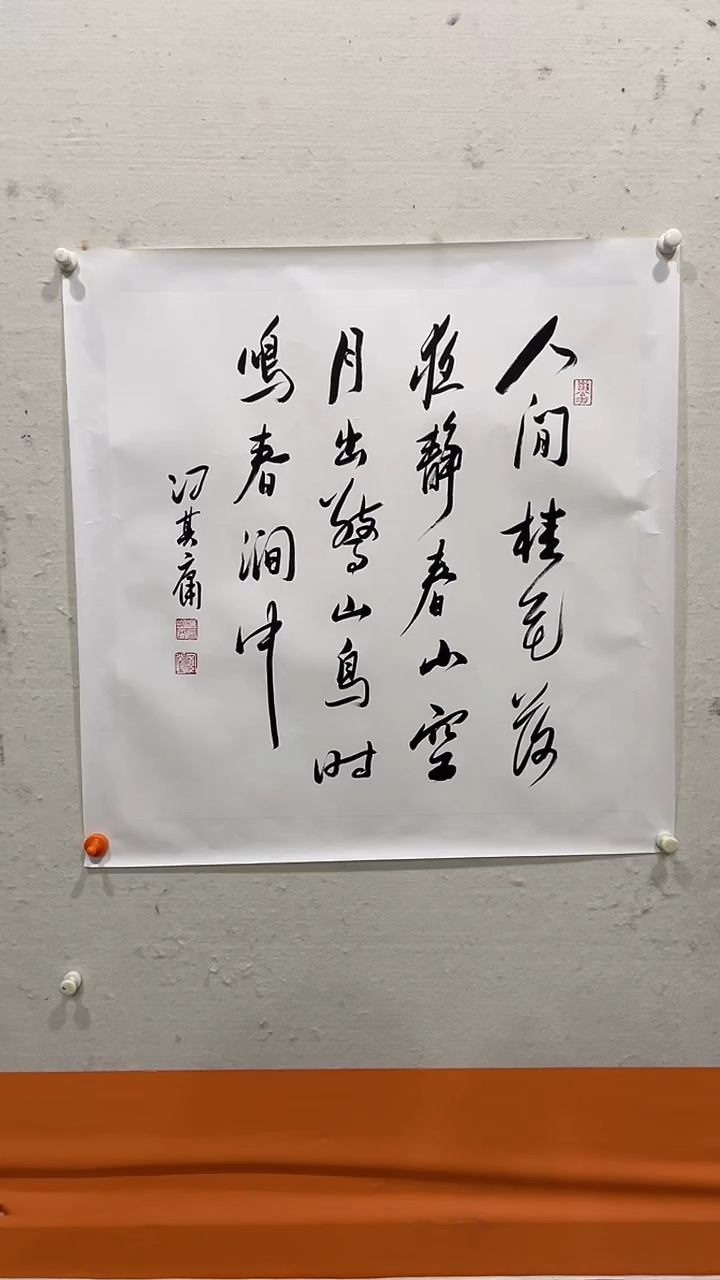 人间桂花落
夜静春山空
月出惊山鸟时
鸣春涧中
冯其庸